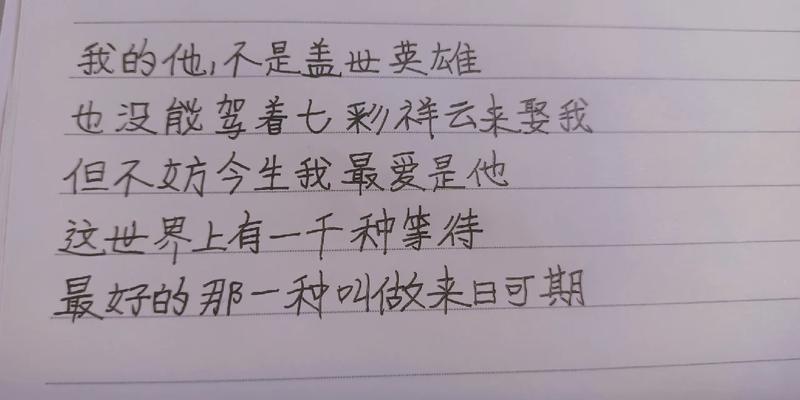 我的他,不是盖世英雄
也没能驾着七彩祥云来娶我
但不妨今生我最爱是他
这世界上有一千种等待
最好的那一种叫做来日可期